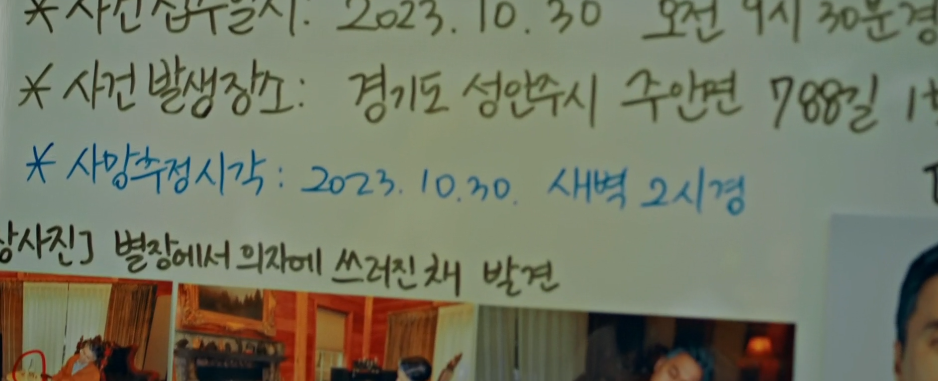 * 사건접수일시: 2023. 10. 30 오전 9시 30분경
* 사건발생장소: 경기도 성안주시 주안면 788길
* 사망추정시각: 2023. 10. 30. 새벽 2시경
상사진] 별장에서 의자에 쓰러진채 발견